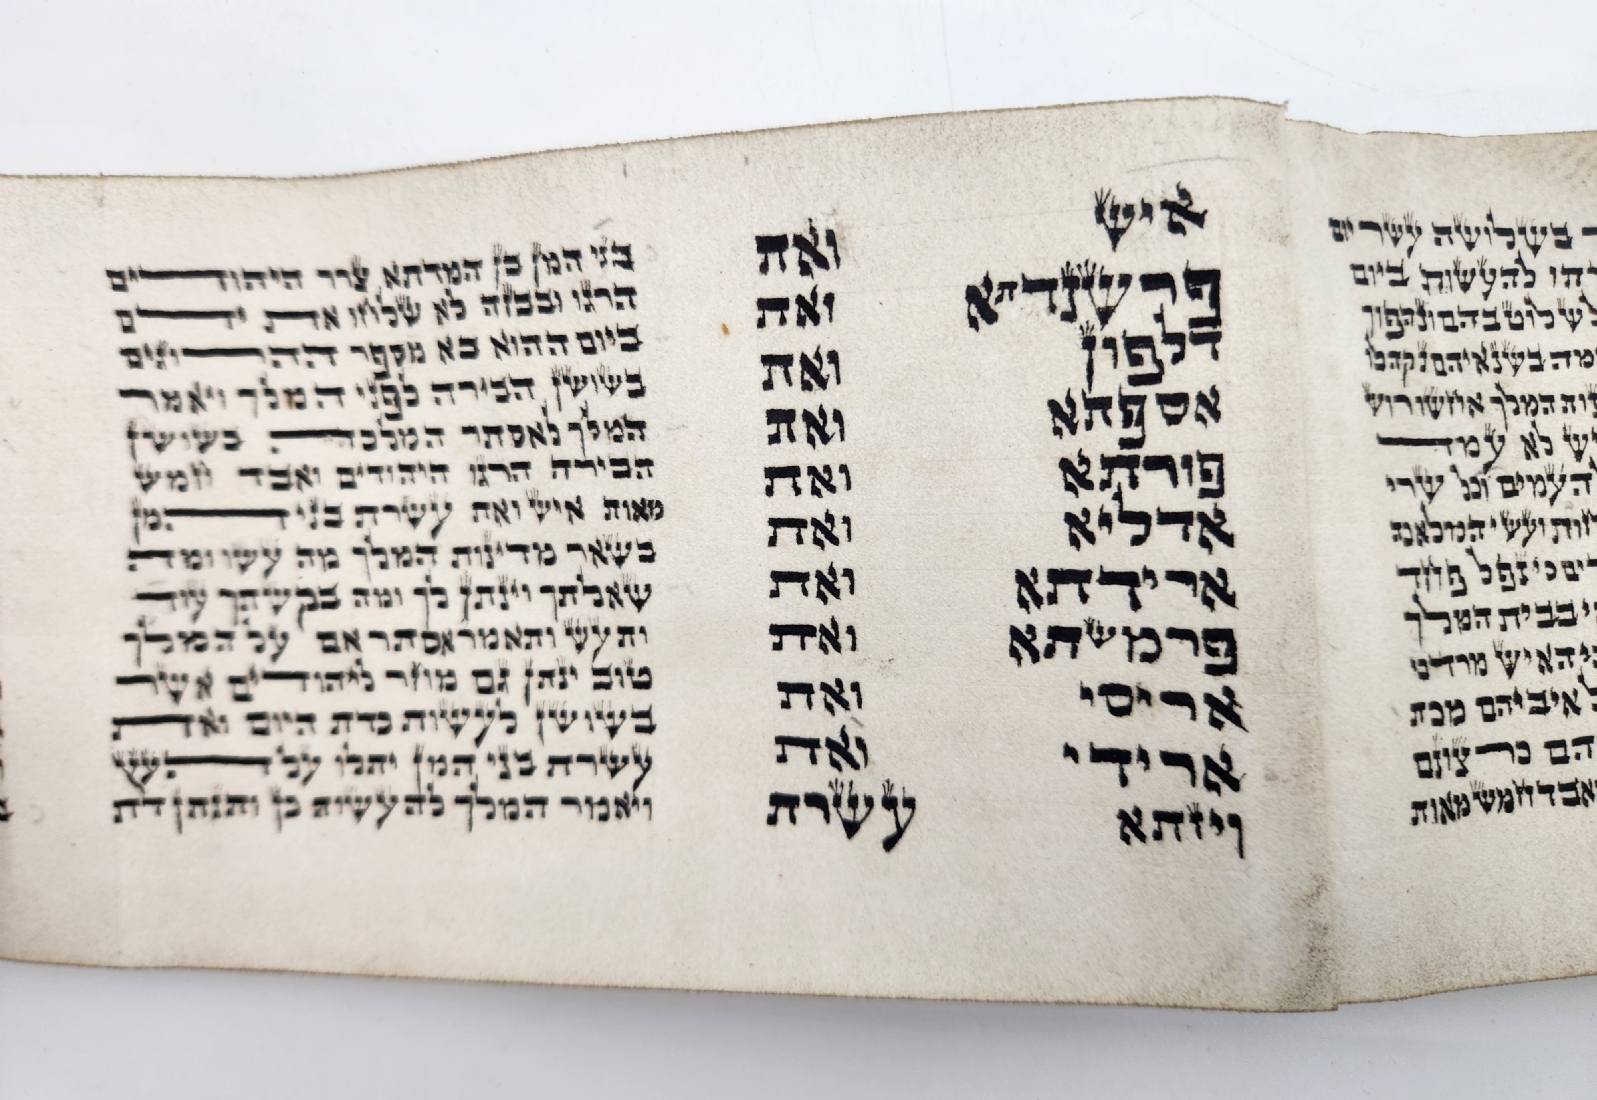 בשלושה עשר יום
להעשות ביום
לשלוט בהם ונהפוך
בשנאיהם נקהלו
המלך אחשורוש
לא עמד
העמים וכל שרי
ועשי המלאכה
כי נפל פחד
בבית המלך
האיש מרדכי
איביהם מכת
כרצונם
חמש מאות
איש ואת
פרשנדתא ואת
דלפון ואת
אספתא ואת
פורתא ואת
אדליא ואת
ארידתא ואת
פרמשתא ואת
אריסי ואת
ארידי ואת
ויזתא עשרת
בני המן בן המדתא צרר היהודים
הרגו ובבזה לא שלחו את ידם
ביום ההוא בא מספר ההרוגים
בשושן הבירה לפני המלך ויאמר
המלך לאסתר המלכה בשושן
הבירה הרגו היהודים ואבד חמש
מאות איש ואת עשרת בני המן
בשאר מדינות המלך מה עשו ומה
שאלתך וינתן לך ומה בקשתך עוד
ותעש ותאמר אסתר אם על המלך
טוב ינתן גם מחר ליהודים אשר
בשושן לעשות כדת היום ואת
עשרת בני המן יתלו על העץ
ויאמר המלך להעשות כן ותנתן דת